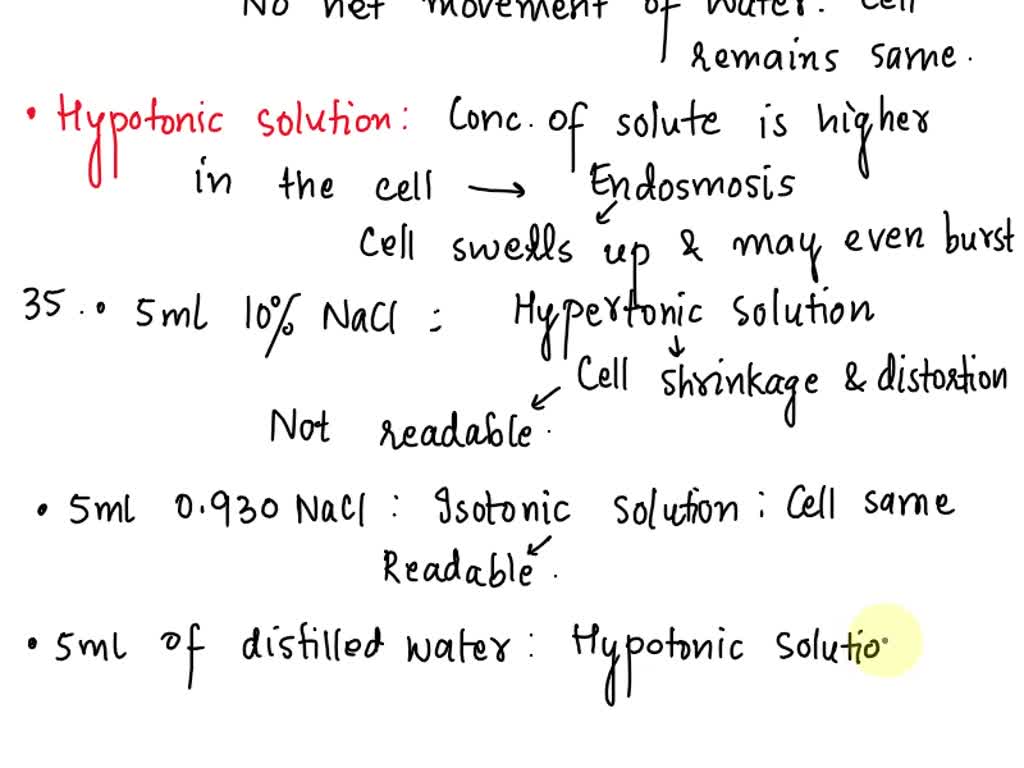 No net movement of water. Cell
remains same.
• Hypotonic solution: Conc. of solute is higher
in the cell → Endosmosis
Cell swells up & may even burst
35. • 5ml 10% NaCl : Hypertonic solution
Cell shrinkage & distortion
Not readable.
• 5ml 0.930 NaCl : Isotonic solution : Cell same
Readable.
• 5ml of distilled water : Hypotonic solutio